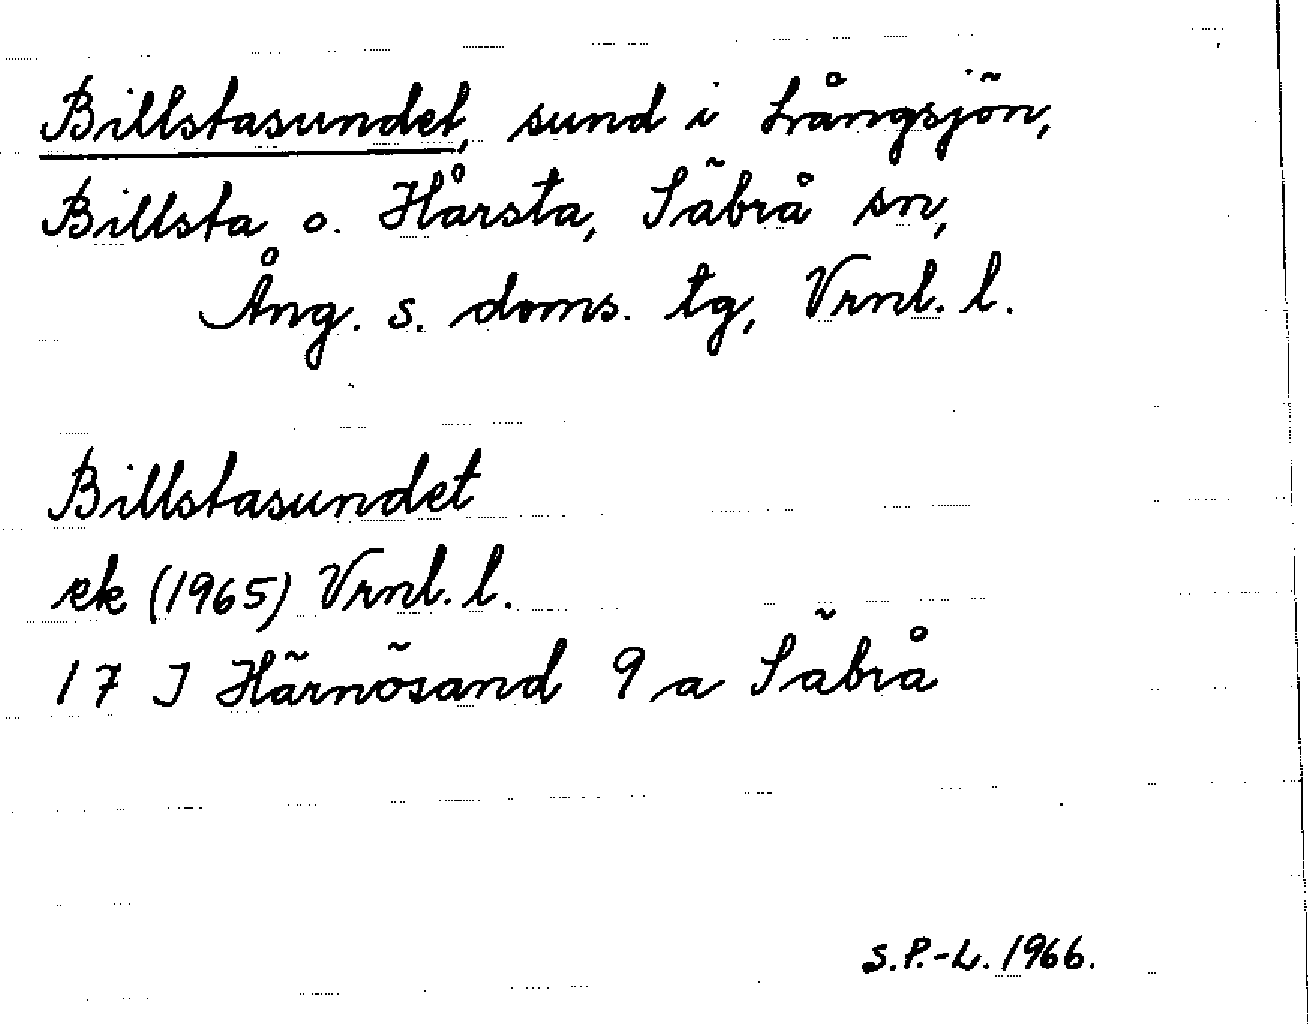 Billstasundet, sund i Långsjön,
Billsta o. Hårsta, Säbrå sn,
Ång. s. doms. tg, Vrnl. l.
Billstasundet
ek (1965) Vrnl. l.
17 J Härnösand 9 a Säbrå
S.P.-L. 1966.